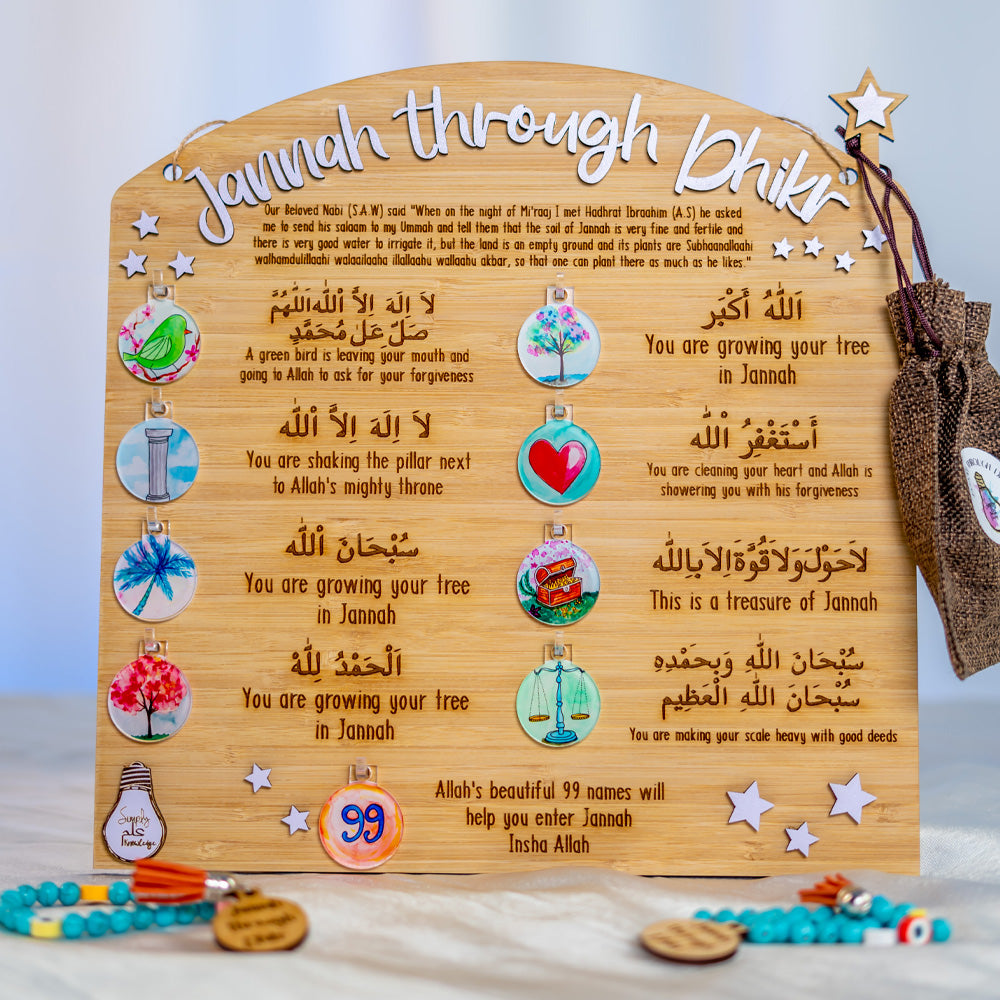 Jannah through Dhikr
Our Beloved Nabi (S.A.W) said "When on the night of Mi'raaj I met Hadhrat Ibraahim (A.S) he asked
me to send his salaam to my Ummah and tell them that the soil of Jannah is very fine and fertile and
there is very good water to irrigate it, but the land is an empty ground and its plants are Subhaanallaahi
walhamdulillaahi walaailaaha illallaahu wallaahu akbar, so that one can plant there as much as he likes."
لاَ اِلَهَ اِلاَّ اْللّٰه اَللّٰهُمَّ
صَلِّ عَلٰى مُحَمَّدٍ
A green bird is leaving your mouth and
going to Allah to ask for your forgiveness
لاَ اِلَهَ اِلاَّ اْللّٰه
You are shaking the pillar next
to Allah's mighty throne
سُبْحَانَ اْللّٰه
You are growing your tree
in Jannah
اَلْحَمْدُ لِلّٰهْ
You are growing your tree
in Jannah
اَللّٰهُ اَكْبَر
You are growing your tree
in Jannah
أَسْتَغْفِرُ اْللّٰه
You are cleaning your heart and Allah is
showering you with his forgiveness
لاَحَوْلَ وَلاَقُوَّةَ اِلاَ بِاللّٰه
This is a treasure of Jannah
سُبْحَانَ اللّٰهِ وَبِحَمْدِهِ
سُبْحَانَ اللّٰهِ الْعَظِيم
You are making your scale heavy with good deeds
99
Allah's beautiful 99 names will
help you enter Jannah
Insha Allah
Simply
علم
Knowledge
Jannah
through
Dhikr